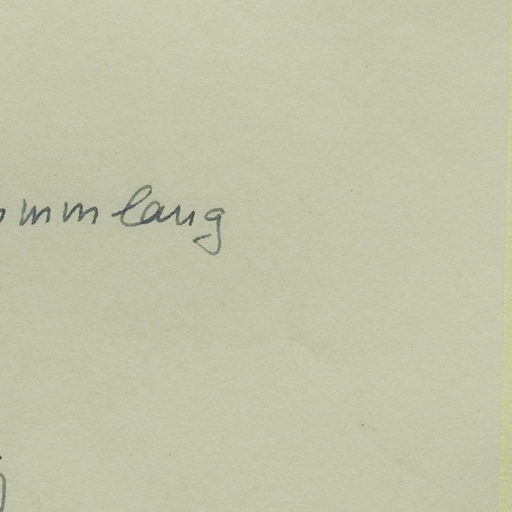 mm lang